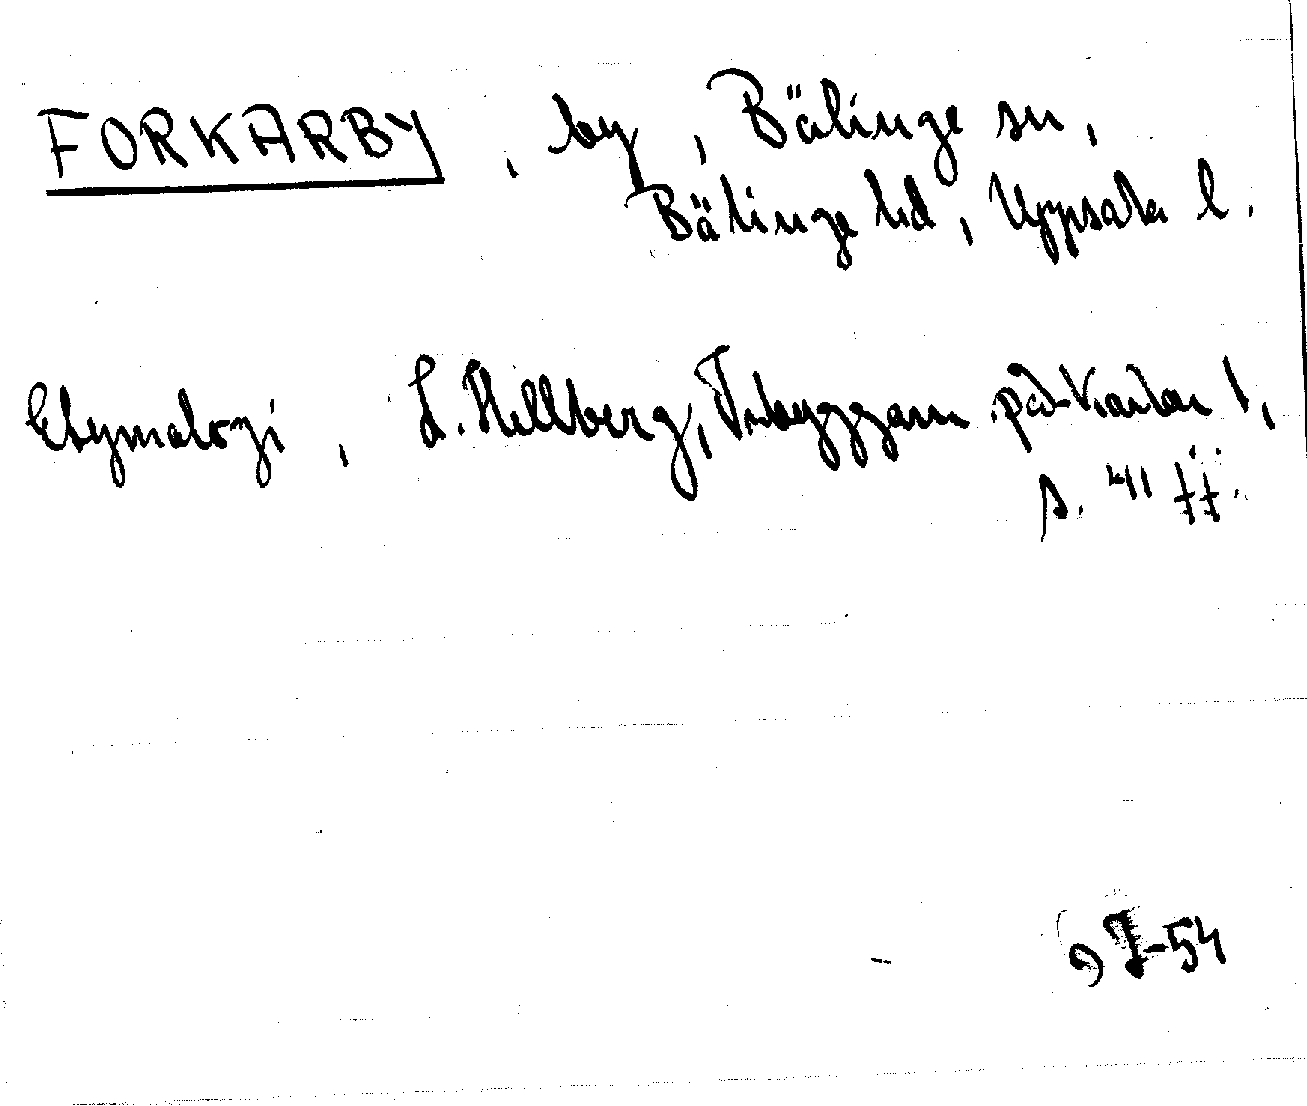 FORKARBY, by, Bälinge sn,
Bälinge hd, Uppsala l.
Etymologi, L. Hellberg, Inbyggarn. på -karlar 1,
s. 41 ff.
J-54